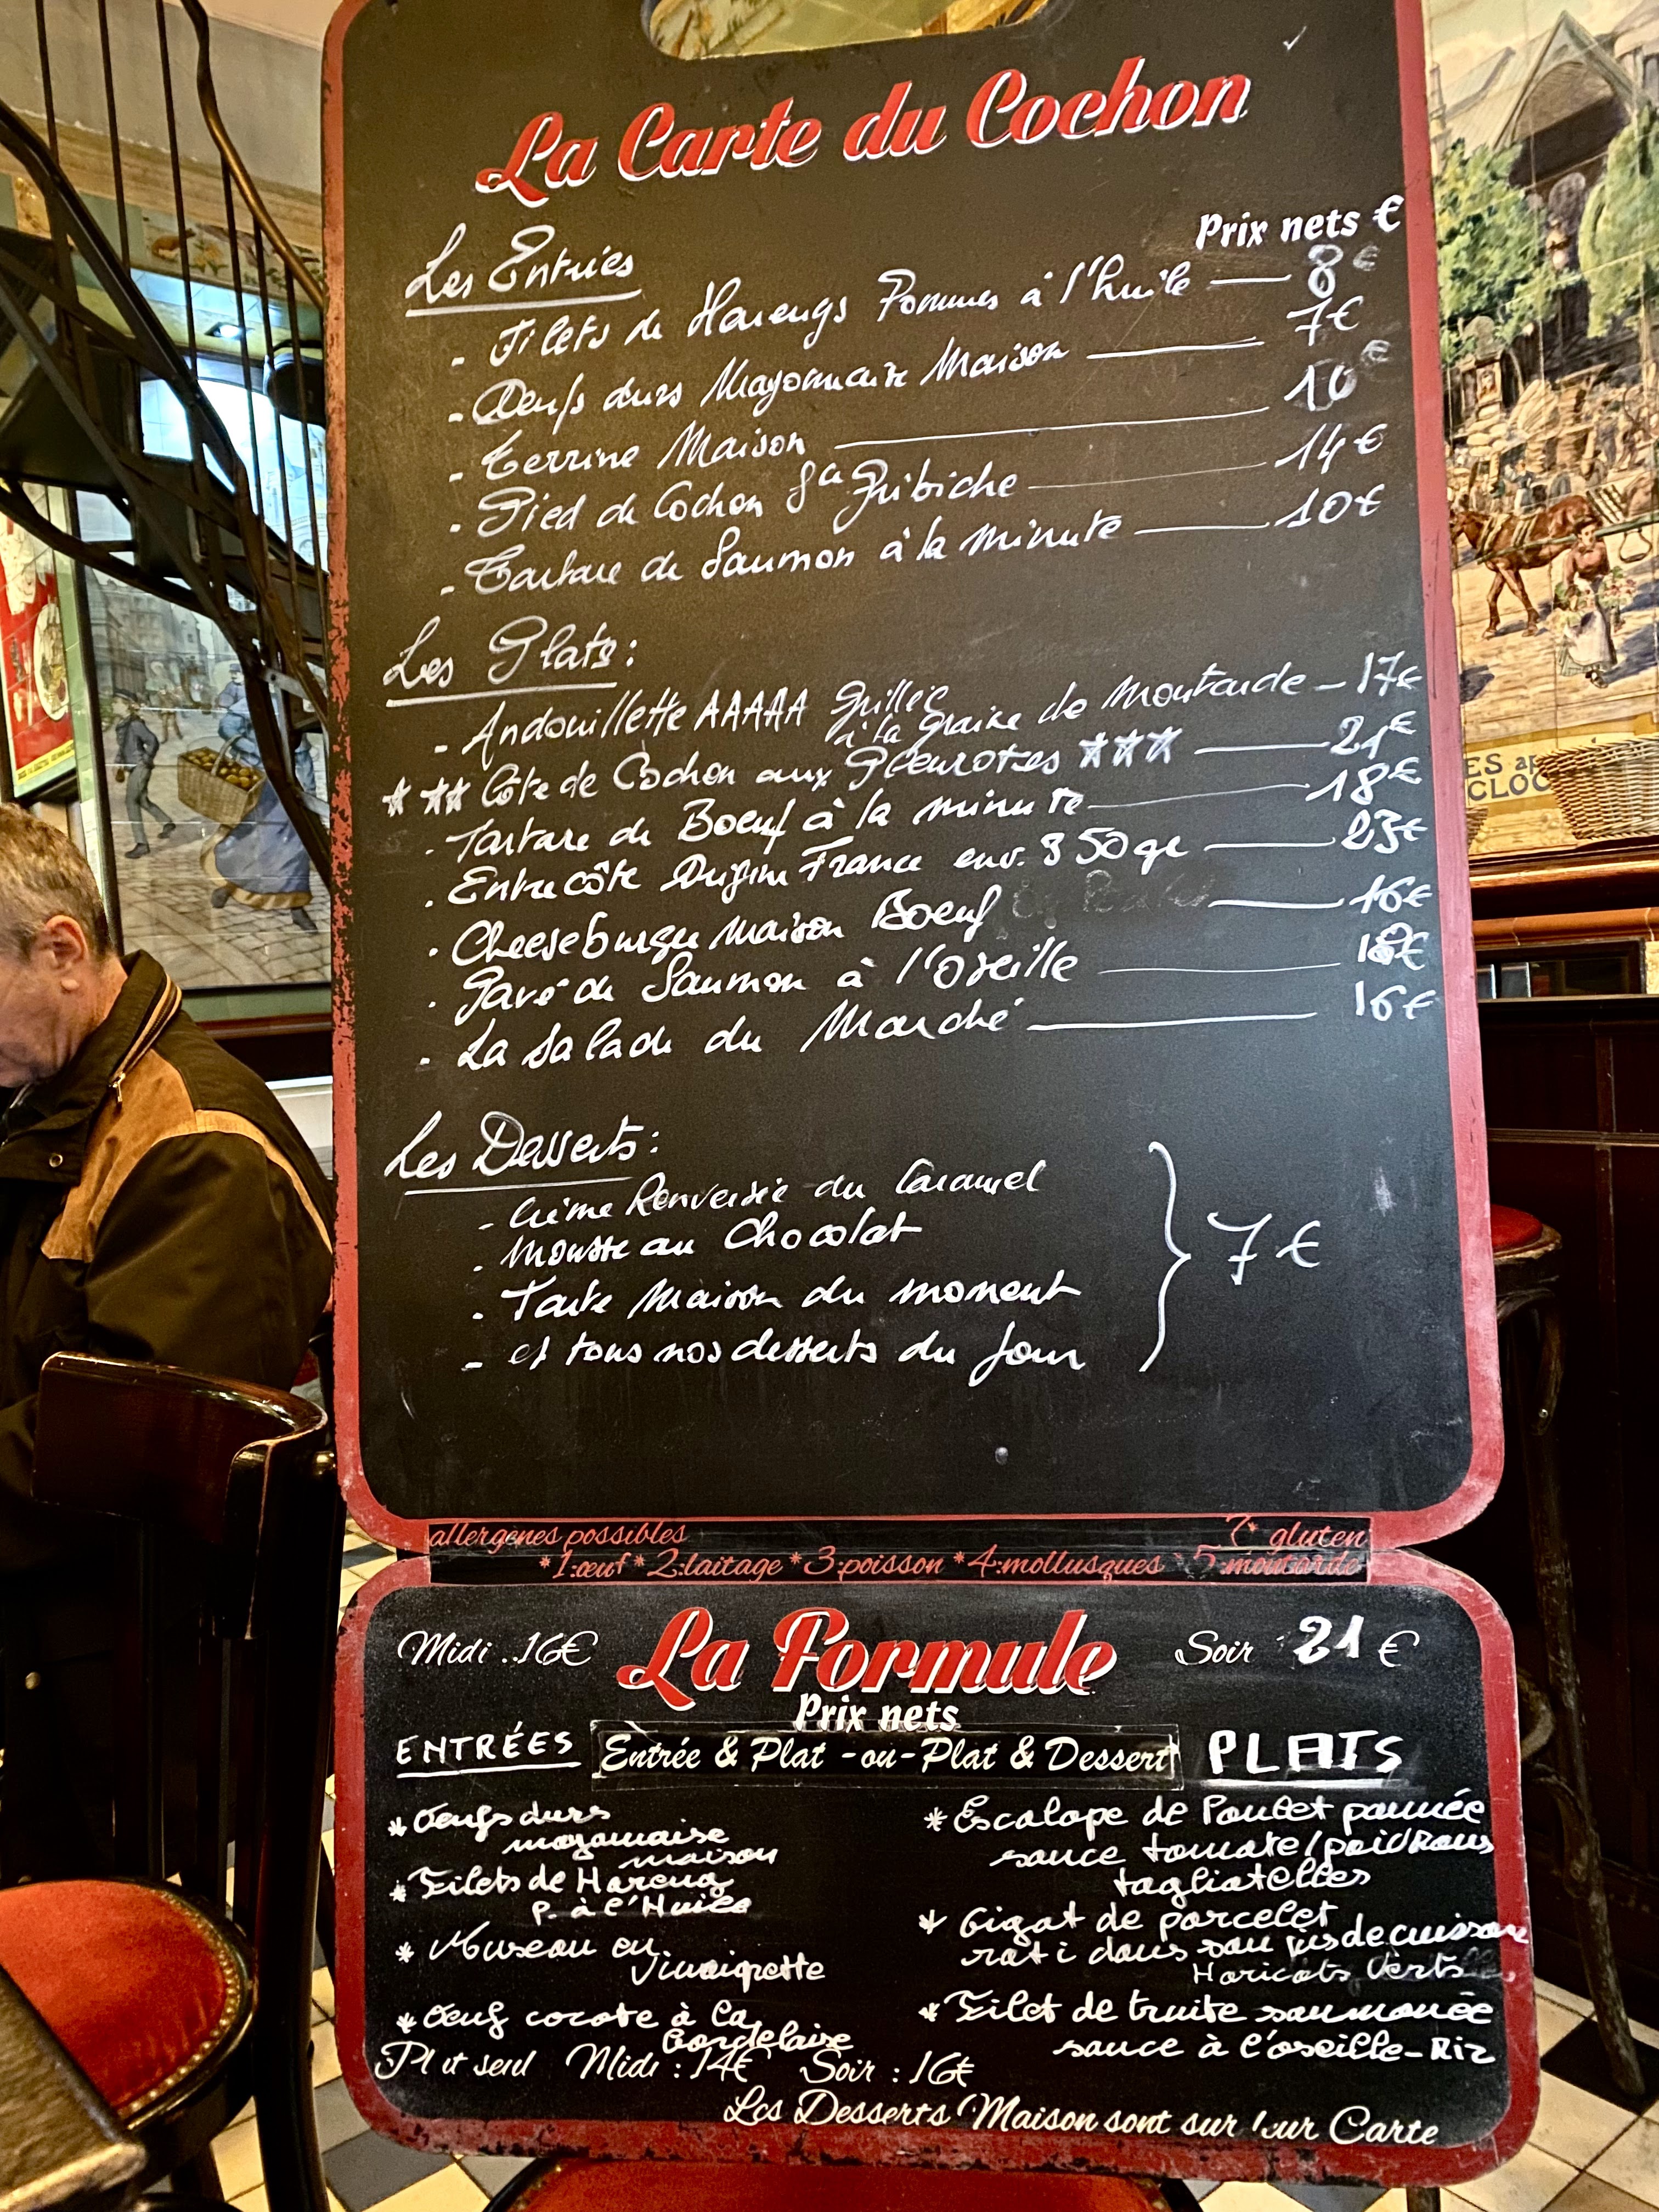 La Carte du Cochon
Prix nets €
Les Entrées
- Filets de Harengs Pommes à l'huile — 8€
- Oeufs durs Mayonnaise Maison — 7€
- Terrine Maison — 10€
- Pied de Cochon Sce Gribiche — 14€
- Tartare de Saumon à la minute — 10€
Les Plats :
- Andouillette AAAAA Grillée
à la graine de Moutarde - 17€
★ ★★ Côte de Cochon aux Pleurotes ★★★ — 21€
- Tartare de Boeuf à la minute — 18€
- Entrecôte Origine France env. 350gr — 23€
- Cheeseburger Maison Boeuf — 16€
- Pavé de Saumon à l'oseille — 18€
- La Salade du Marché — 16€
Les Desserts :
- Crème Renversée au Caramel
- Mousse au Chocolat
- Tarte Maison du moment
7€
- et tous nos desserts du jour
allergènes possibles 7* gluten
*1:œuf *2:laitage *3:poisson *4:mollusques *5:moutarde
Midi ..16€ La Formule Soir : 21€
Prix nets
ENTRÉES Entrée & Plat -ou- Plat & Dessert PLATS
* Oeufs durs
mayonnaise
maison
* Filets de Hareng
P. à l'Huile
* Museau en
Vinaigrette
* Oeuf cocote à la
Bordelaise
* Escalope de Poulet pannée
sauce tomate/poivrons
tagliatelles
* Gigot de porcelet
roti dans son jus de cuisson
Haricots Verts
* Filet de truite saumonée
sauce à l'oseille - Riz
Plat seul Midi : 14€ Soir : 16€
Les Desserts Maison sont sur leur Carte
ES
CLOC